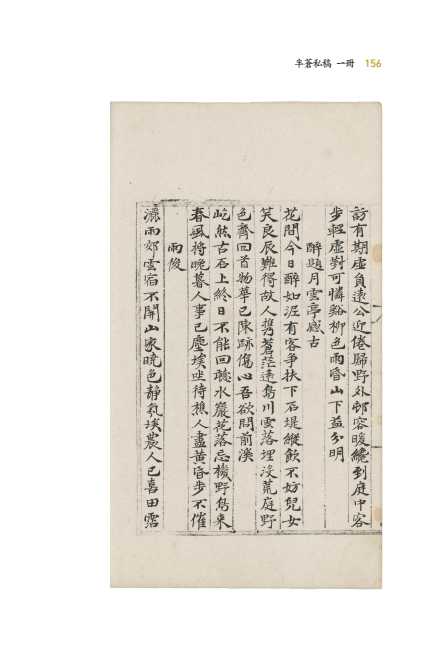 半蒼私稿 一冊 156
訪有期虛負遠公近倦歸野外邨容暖纔到庭中客
步輕虛對可憐谿柳色雨昏山下益分明
醉題月雲亭感古
花間今日醉如泥有客爭扶下石堤縱飲不妨兒女
笑良辰難得故人携蒼茫遠島川雲落埋沒荒庭野
色齊回首物華已陳跡傷心吾欲問前溪
屹然古石上終日不能回聽水巖花落忘機野鳥來
春風將晚暮人事已塵埃坐待樵人盡黃昏步不催
雨後
瀑雨郊雲宿不開山家曉色靜氛埃農人已喜田